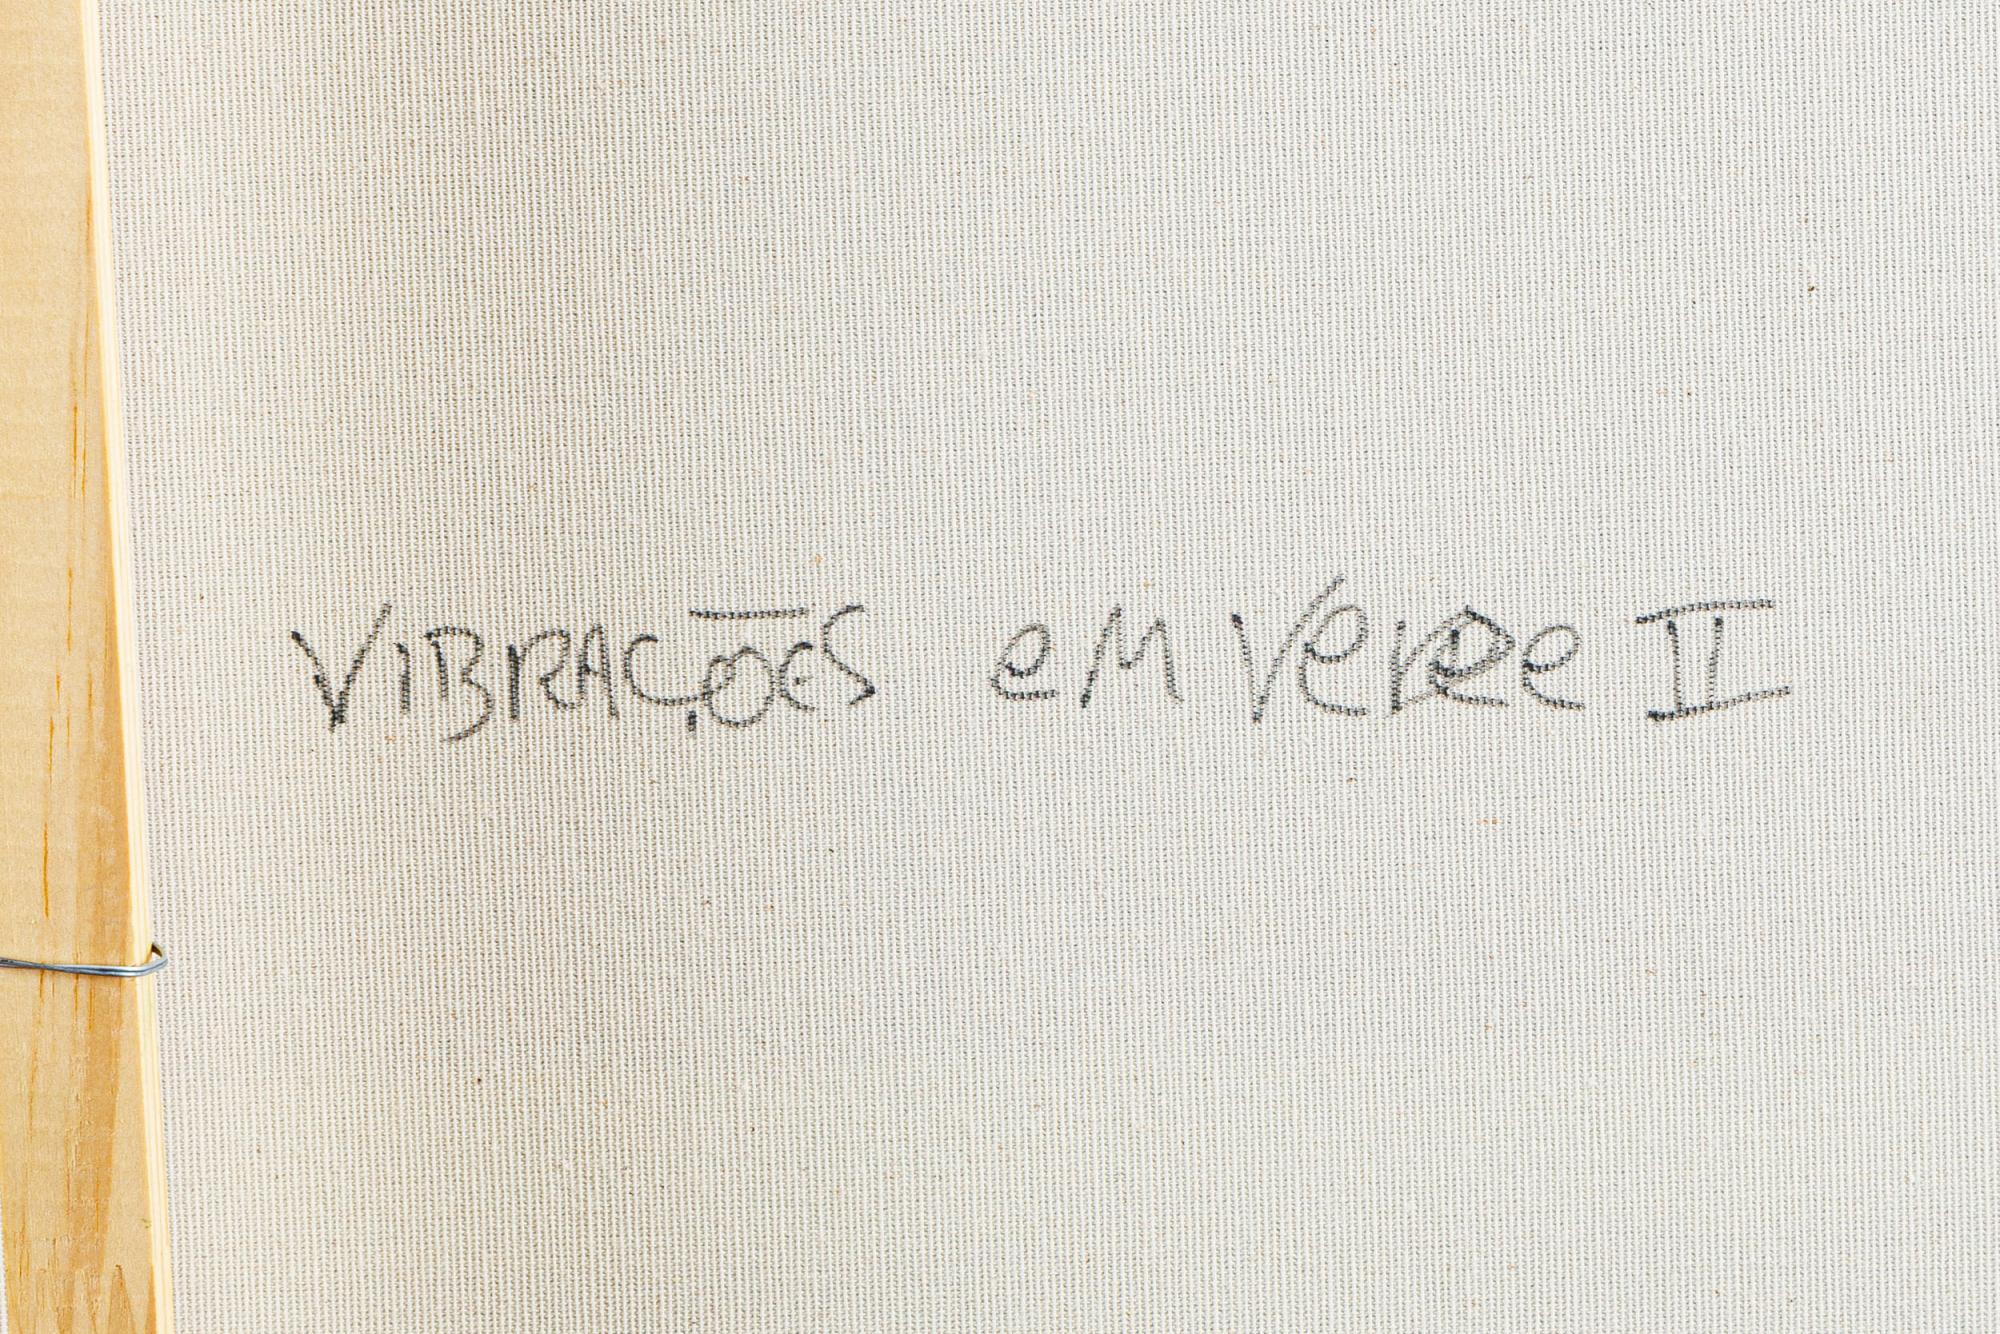 VIBRAÇÕES em Verde II